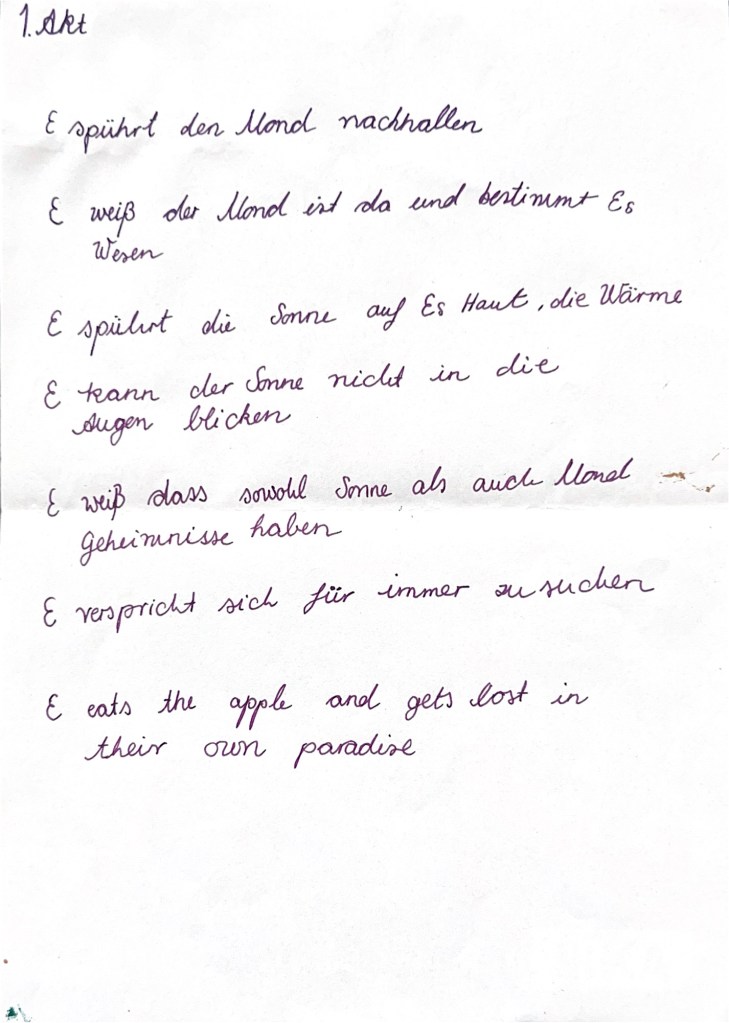 1. Akt
E spührt den Mond nachhallen
E weiß der Mond ist da und bestimmt Es
Wesen
E spührt die Sonne auf Es Haut, die Wärme
E kann der Sonne nicht in die
Augen blicken
E weiß dass sowohl Sonne als auch Mond
Geheimnisse haben
E verspricht sich für immer zu suchen
E eats the apple and gets lost in
their own paradise